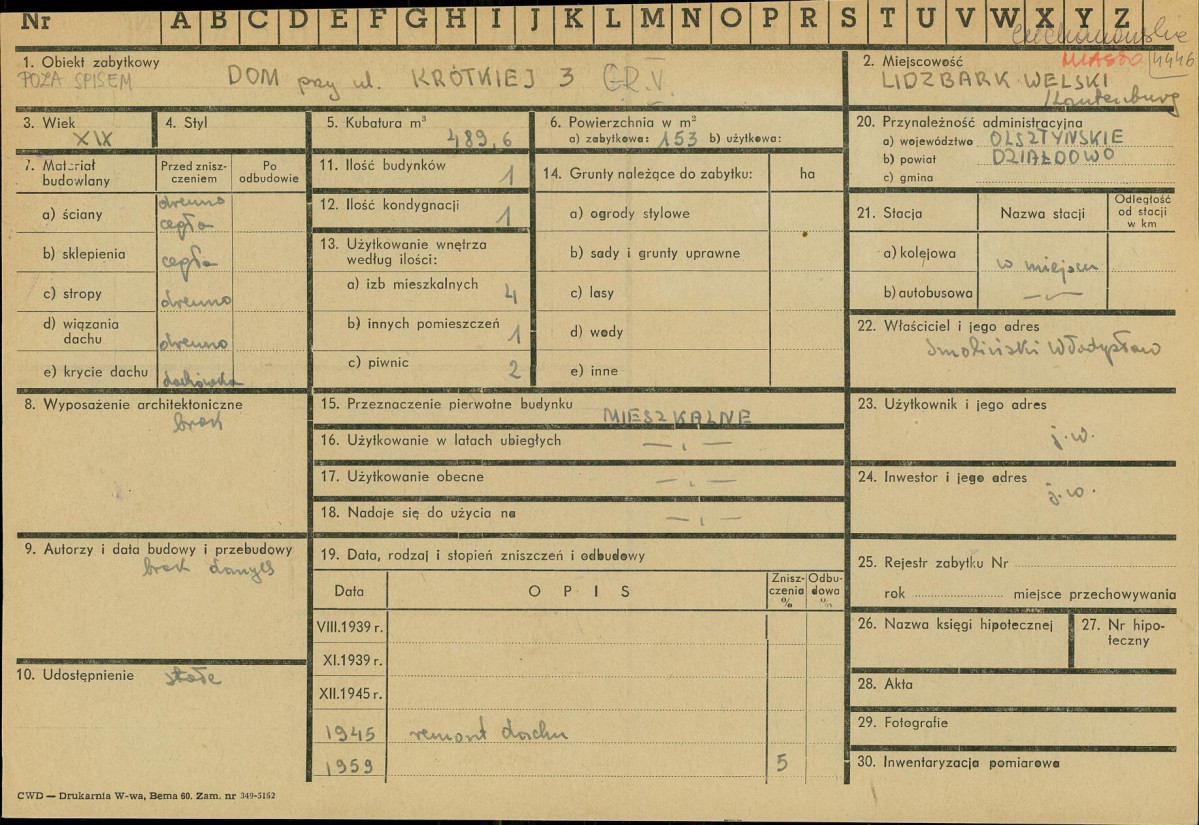 Nr A B C D E F G H I J K L M N O P R S T U V W X Y Z
Ciechanowskie
1. Obiekt zabytkowy
POZA SPISEM
DOM przy ul. KRÓTKIEJ 3 GR.V.
2. Miejscowość
MIASTO 4446
LIDZBARK WELSKI
/Lautenburg
3. Wiek
XIX
4. Styl
5. Kubatura m³
489,6
6. Powierzchnia w m²
a) zabytkowa: 153 b) użytkowa:
20. Przynależność administracyjna
a) województwo OLSZTYŃSKIE
b) powiat DZIAŁDOWO
c) gmina
7. Materiał budowlany
Przed zniszczeniem
Po odbudowie
a) ściany drewno
cegła
b) sklepienia cegła
c) stropy drewno
d) wiązania dachu drewno
e) krycie dachu dachówka
11. Ilość budynków 1
12. Ilość kondygnacji 1
13. Użytkowanie wnętrza
według ilości:
a) izb mieszkalnych 4
b) innych pomieszczeń 1
c) piwnic 2
14. Grunty należące do zabytku: ha
a) ogrody stylowe
b) sady i grunty uprawne
c) lasy
d) wody
e) inne
21. Stacja
Nazwa stacji
Odległość
od stacji
w km
a) kolejowa w miejscu
b) autobusowa —〃—
22. Właściciel i jego adres
Smoliński Władysław
8. Wyposażenie architektoniczne
brak
15. Przeznaczenie pierwotne budynku MIESZKALNE
16. Użytkowanie w latach ubiegłych — „ —
17. Użytkowanie obecne — „ —
18. Nadaje się do użycia na — „ —
23. Użytkownik i jego adres
j.w.
24. Inwestor i jego adres
j.w.
9. Autorzy i data budowy i przebudowy
brak danych
10. Udostępnienie stałe
19. Data, rodzaj i stopień zniszczeń i odbudowy
Data OPIS Zniszczenia % Odbudowa %
VIII.1939 r.
XI.1939 r.
XII.1945 r.
1945 remont dachu
1959 5
25. Rejestr zabytku Nr
rok miejsce przechowywania
26. Nazwa księgi hipotecznej
27. Nr hipoteczny
28. Akta
29. Fotografie
30. Inwentaryzacja pomiarowa
CWD — Drukarnia W-wa, Bema 60. Zam. nr 349-5162